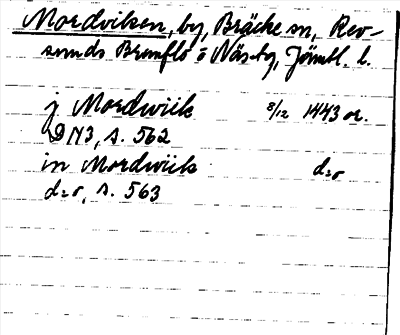 Mordviken, by, Bräcke sn, Rev-
sunds Brunflo o Näs tg, Jämtl. l.
j Mordwiik 8/12 1443 or.
DN3, s. 562
in Mordwiik d:o
d:o, s. 563